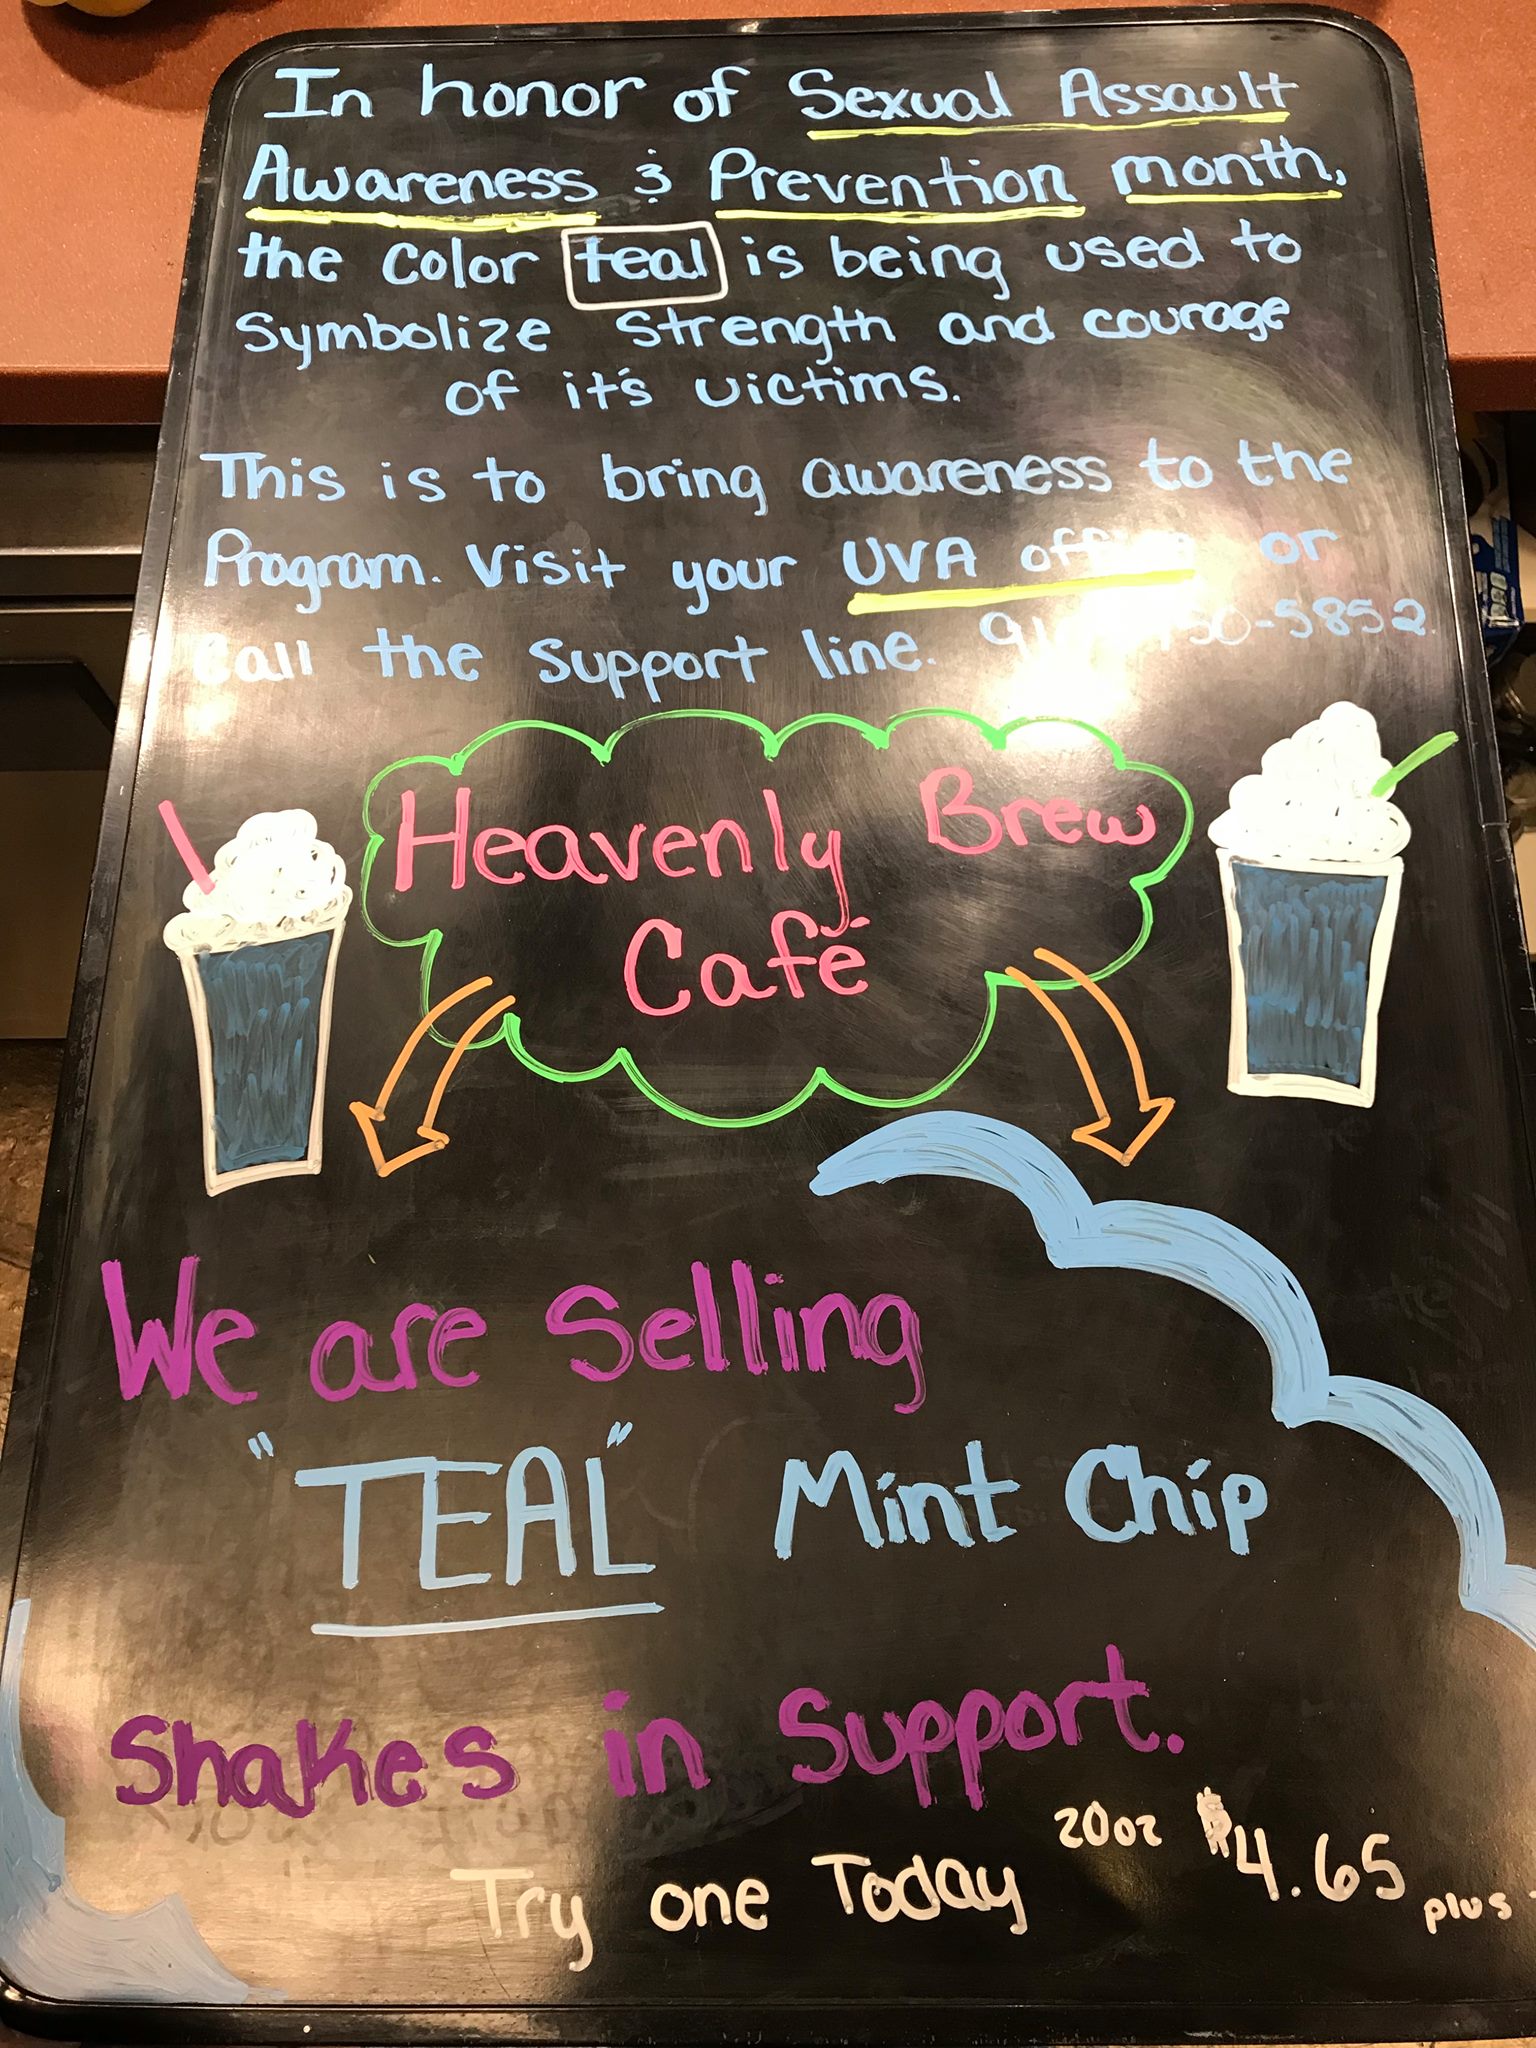 In honor of Sexual Assault
Awareness & Prevention month,
the color teal is being used to
Symbolize Strength and courage
of it's victims.
This is to bring awareness to the
Program. Visit your UVA office or
Call the Support line.
Heavenly Brew
Café
We are Selling
"TEAL" Mint Chip
Shakes in Support.
Try one Today 20oz $4.65 plus